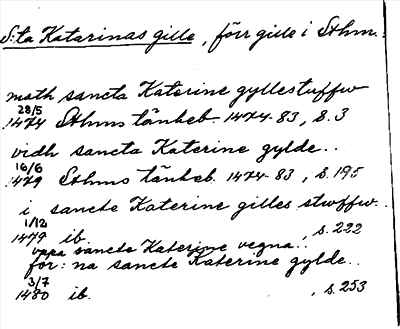 S:ta Katarinas gille, förr gille i Sthm:
math sancta Katerine gyllestuffw
28/5
1474 Sthms tänkeb. 1474-83, s. 3
vidh sancta Katerine gylde..
16/6
1479 Sthms tänkeb. 1474-83, s. 195
i sancte Katerine gilles stwffw..
1/12
1479 ib. , s. 222
uppa sancte Katerine vegna..
for: na sancte Katerine gylde..
3/7
1480 ib. , s. 253